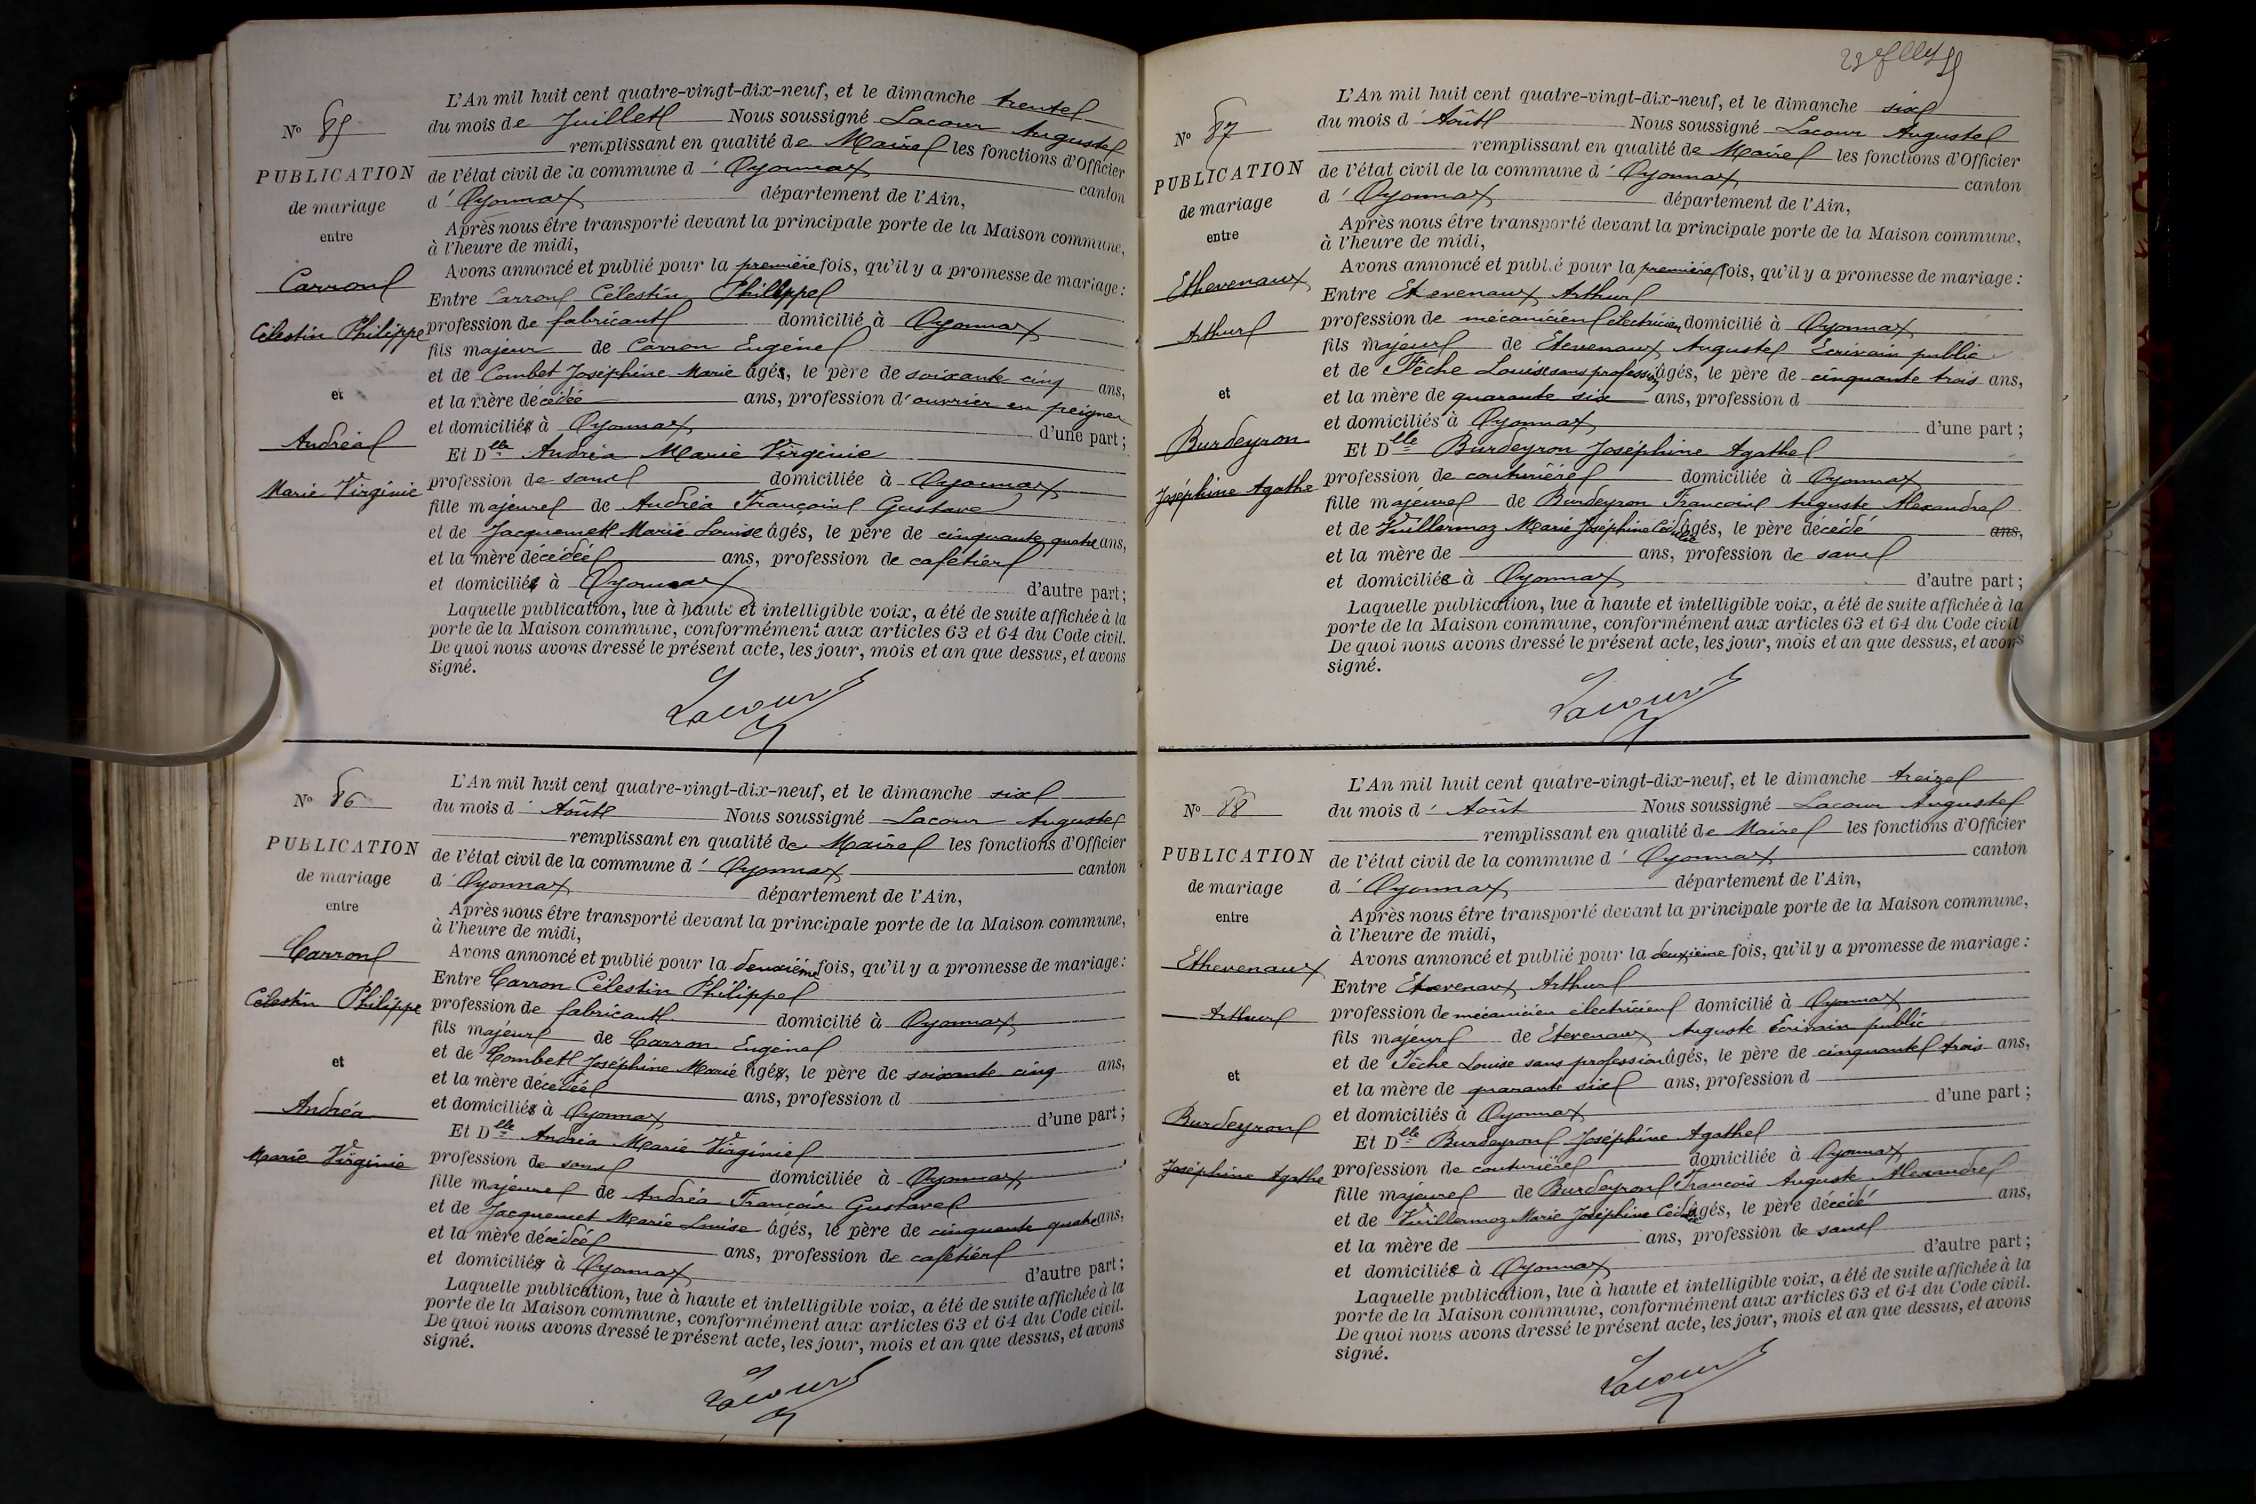 N° 85
PUBLICATION
de mariage
entre
Carron
Célestin Philippe
et
Andréa
Marie Virginie
L'An mil huit cent quatre-vingt-dix-neuf, et le dimanche trente
du mois de Juillet Nous soussigné Lacour Auguste
remplissant en qualité de Maire les fonctions d'Officier
de l'état civil de la commune d'Oyonnax canton
d'Oyonnax département de l'Ain,
Après nous être transporté devant la principale porte de la Maison commune,
à l'heure de midi,
Avons annoncé et publié pour la première fois, qu'il y a promesse de mariage :
Entre Carron Célestin Philippe
profession de fabricant domicilié à Oyonnax
fils majeur de Carron Eugène
et de Combet Joséphine Marie âgés, le père de soixante cinq ans,
et la mère décédée ans, profession d'ouvrier en peignes
et domiciliés à Oyonnax d'une part ;
Et Dlle Andréa Marie Virginie
profession de sans domiciliée à Oyonnax
fille majeure de Andréa François Gustave
et de Jacquemet Marie Louise âgés, le père de cinquante quatre ans,
et la mère décédée ans, profession de cafétier
et domiciliés à Oyonnax d'autre part ;
Laquelle publication, lue à haute et intelligible voix, a été de suite affichée à la
porte de la Maison commune, conformément aux articles 63 et 64 du Code civil.
De quoi nous avons dressé le présent acte, les jour, mois et an que dessus, et avons
signé.
Lacour
N° 86
PUBLICATION
de mariage
entre
Carron
Célestin Philippe
et
Andréa
Marie Virginie
L'An mil huit cent quatre-vingt-dix-neuf, et le dimanche six
du mois d'Août Nous soussigné Lacour Auguste
remplissant en qualité de Maire les fonctions d'Officier
de l'état civil de la commune d'Oyonnax canton
d'Oyonnax département de l'Ain,
Après nous être transporté devant la principale porte de la Maison commune,
à l'heure de midi,
Avons annoncé et publié pour la deuxième fois, qu'il y a promesse de mariage :
Entre Carron Célestin Philippe
profession de fabricant domicilié à Oyonnax
fils majeur de Carron Eugène
et de Combet Joséphine Marie âgés, le père de soixante cinq ans,
et la mère décédée ans, profession d
et domiciliés à Oyonnax d'une part ;
Et Dlle Andréa Marie Virginie
profession de sans domiciliée à Oyonnax
fille majeure de Andréa François Gustave
et de Jacquemet Marie Louise âgés, le père de cinquante quatre ans,
et la mère décédée ans, profession de cafétier
et domiciliés à Oyonnax d'autre part ;
Laquelle publication, lue à haute et intelligible voix, a été de suite affichée à la
porte de la Maison commune, conformément aux articles 63 et 64 du Code civil.
De quoi nous avons dressé le présent acte, les jour, mois et an que dessus, et avons
signé.
Lacour
N° 87
PUBLICATION
de mariage
entre
Ethevenaux
Arthur
et
Burdeyron
Joséphine Agathe
L'An mil huit cent quatre-vingt-dix-neuf, et le dimanche six
du mois d'Août Nous soussigné Lacour Auguste
remplissant en qualité de Maire les fonctions d'Officier
de l'état civil de la commune d'Oyonnax canton
d'Oyonnax département de l'Ain,
Après nous être transporté devant la principale porte de la Maison commune,
à l'heure de midi,
Avons annoncé et publié pour la première fois, qu'il y a promesse de mariage :
Entre Etevenaux Arthur
profession de mécanicien électricien domicilié à Oyonnax
fils majeur de Etevenaux Auguste Ecrivain public
et de Fêche Louise sans profession âgés, le père de cinquante trois ans,
et la mère de quarante six ans, profession d
et domiciliés à Oyonnax d'une part ;
Et Dlle Burdeyron Joséphine Agathe
profession de couturière domiciliée à Oyonnax
fille majeure de Burdeyron François Auguste Alexandre
et de Vuillermoz Marie Joséphine âgés, le père décédé ans,
et la mère de ans, profession de sans
et domiciliée à Oyonnax d'autre part ;
Laquelle publication, lue à haute et intelligible voix, a été de suite affichée à la
porte de la Maison commune, conformément aux articles 63 et 64 du Code civil
De quoi nous avons dressé le présent acte, les jour, mois et an que dessus, et avons
signé.
Lacour
N° 88
PUBLICATION
de mariage
entre
Ethevenaux
Arthur
et
Burdeyron
Joséphine Agathe
L'An mil huit cent quatre-vingt-dix-neuf, et le dimanche treize
du mois d'Août Nous soussigné Lacour Auguste
remplissant en qualité de Maire les fonctions d'Officier
de l'état civil de la commune d'Oyonnax canton
d'Oyonnax département de l'Ain,
Après nous être transporté devant la principale porte de la Maison commune,
à l'heure de midi,
Avons annoncé et publié pour la deuxième fois, qu'il y a promesse de mariage :
Entre Etevenaux Arthur
profession de mécanicien électricien domicilié à Oyonnax
fils majeur de Etevenaux Auguste Ecrivain public
et de Fêche Louise sans profession âgés, le père de cinquante trois ans,
et la mère de quarante six ans, profession d
et domiciliés à Oyonnax d'une part ;
Et Dlle Burdeyron Joséphine Agathe
profession de couturière domiciliée à Oyonnax
fille majeure de Burdeyron François Auguste Alexandre
et de Vuillermoz Marie Joséphine âgés, le père décédé ans,
et la mère de ans, profession de sans
et domiciliée à Oyonnax d'autre part ;
Laquelle publication, lue à haute et intelligible voix, a été de suite affichée à la
porte de la Maison commune, conformément aux articles 63 et 64 du Code civil.
De quoi nous avons dressé le présent acte, les jour, mois et an que dessus, et avons
signé.
Lacour